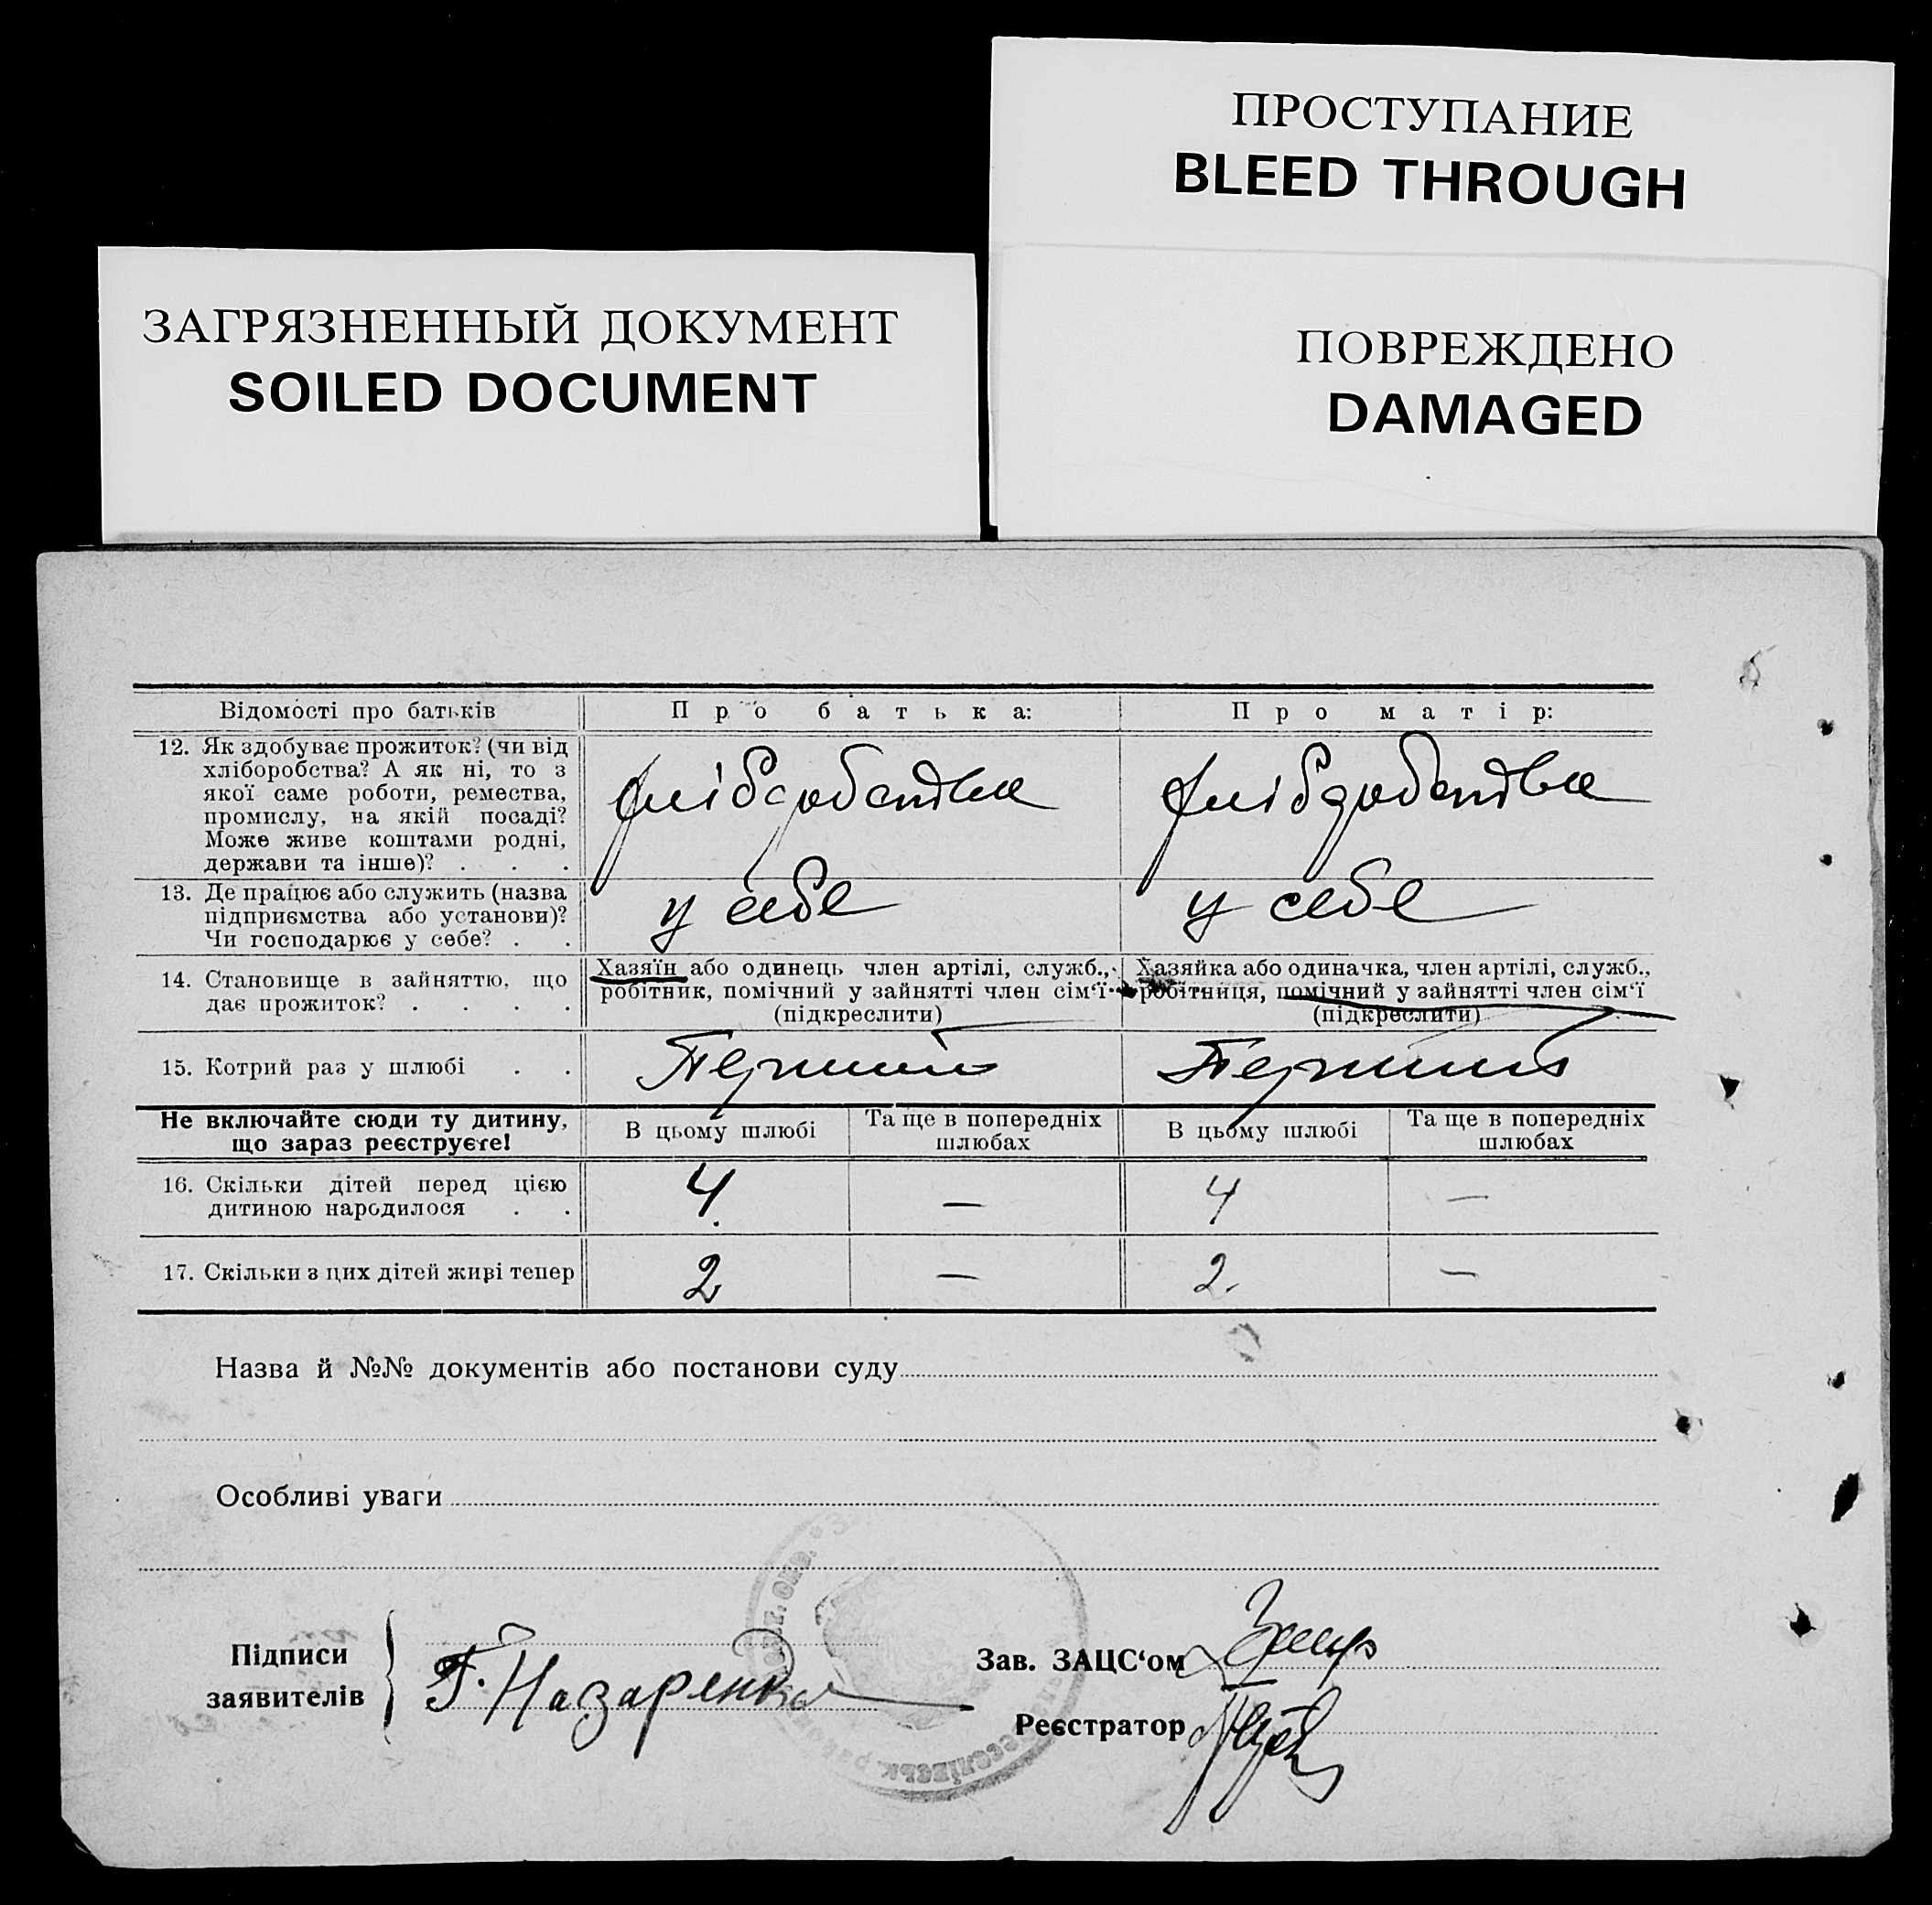 ПРОСТУПАНИЕ
BLEED THROUGH
ЗАГРЯЗНЕННЫЙ ДОКУМЕНТ
SOILED DOCUMENT
ПОВРЕЖДЕНО
DAMAGED
Відомості про батьків
Про батька:
Про матір:
12. Як здобуває прожиток? (чи від
хліборобства? А як ні, то з
якої саме роботи, ремества,
промислу, на якій посаді?
Може живе коштами родні,
держави та інше)? . . .
хліборобства
хліборобства
13. Де працює або служить (назва
підприємства або установи)?
Чи господарює у себе? . .
у себе
у себе
14. Становище в зайняттю, що
дає прожиток? . . . .
Хазяїн або одинець член артілі, служб.,
робітник, помічний у зайнятті член сім‘ї
(підкреслити)
Хазяйка або одиначка, член артілі, служб.,
робітниця, помічний у зайнятті член сім‘ї
(підкреслити)
15. Котрий раз у шлюбі . .
Перший
Перший
Не включайте сюди ту дитину,
що зараз реєструєте!
В цьому шлюбі
Та ще в попередніх
шлюбах
В цьому шлюбі
Та ще в попередніх
шлюбах
16. Скільки дітей перед цією
дитиною народилося . .
4 — 4 —
17. Скільки з цих дітей живі тепер
2 — 2. —
Назва й №№ документів або постанови суду
Особливі уваги
Підписи
заявителів
Г. Назаренко
Зав. ЗАЦС‘ом
Реєстратор